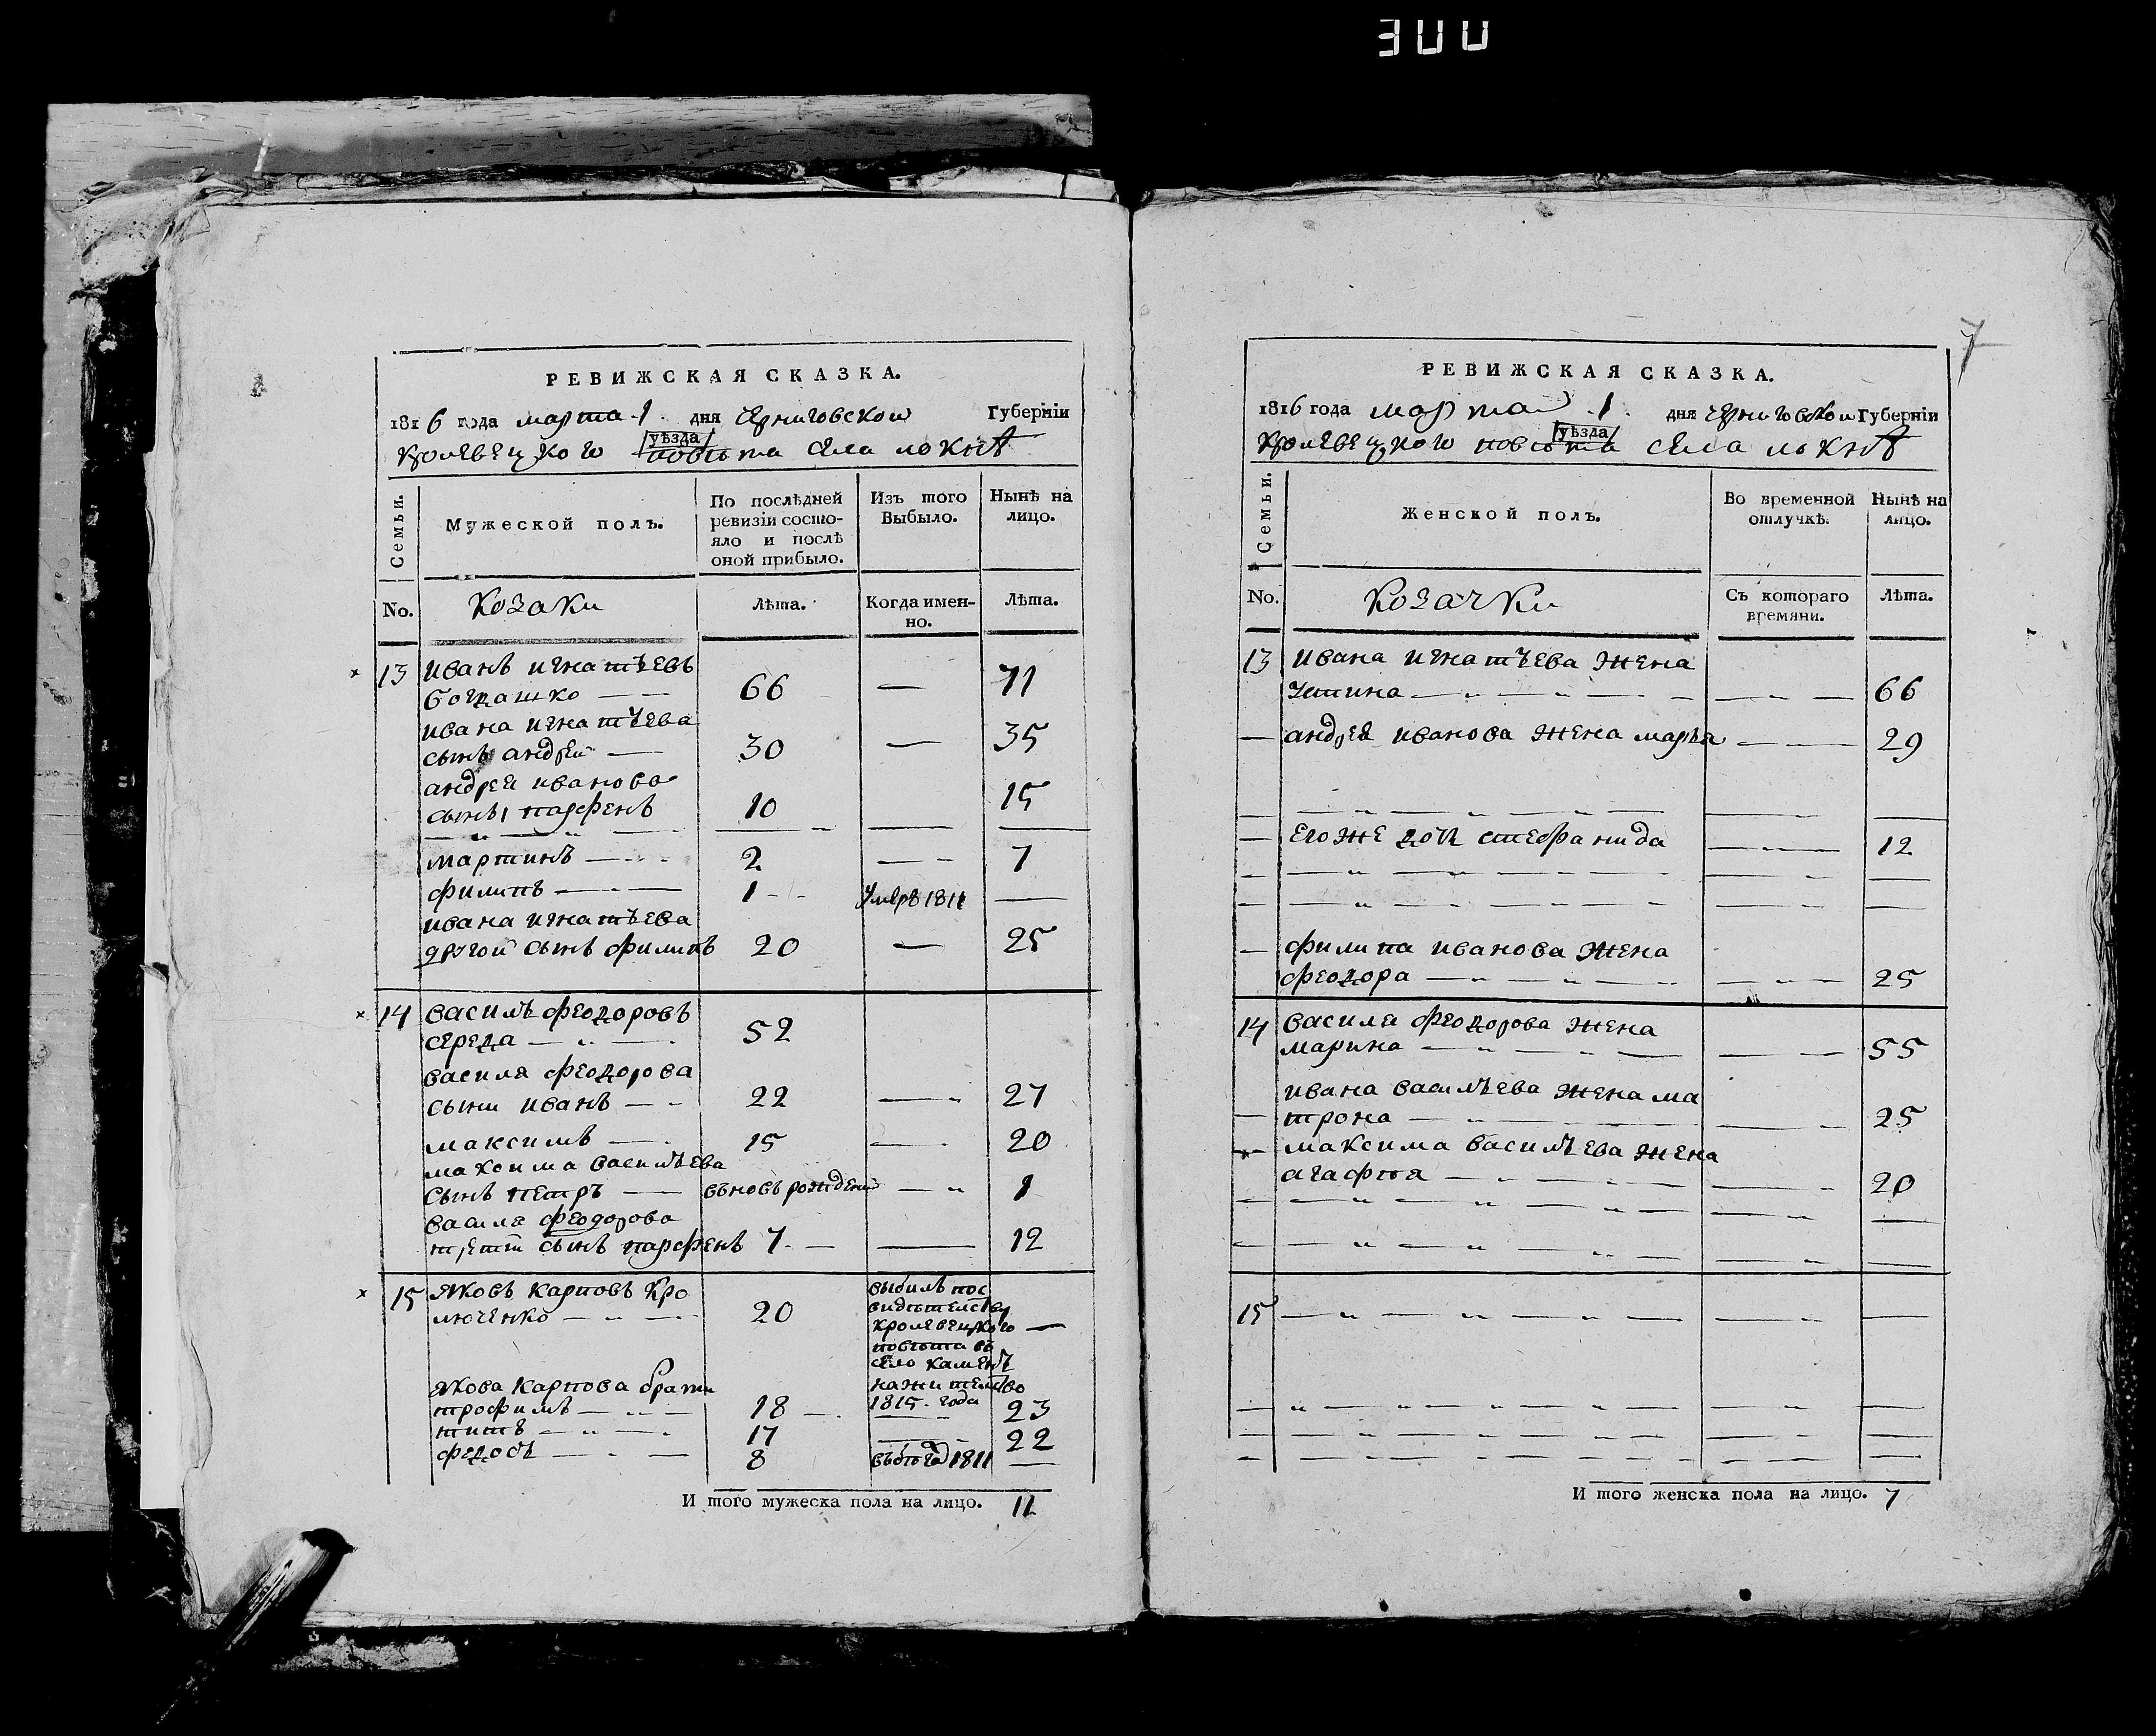 300
РЕВИЖСКАЯ СКАЗКА.
1816 года марта 1. дня Черниговской Губерніи
Кролевецкого повѣта уѣзда села локнѣ
Семьи.
Мужеской полъ.
По послѣдней ревизіи состо-
яло и послѣ
оной прибыло.
Изъ того
Выбыло.
Нынѣ на
лицо.
No.
Козаки
Лѣта.
Когда имен-
но.
Лѣта.
13 иванъ игнатъевъ
богдашко 66 — 71
ивана игнатъева
сынъ андрей — 30 — 35
андрея иванова
сынъ1 парфенъ 10 15
мартинъ 2 — 7
филипъ 1 Умеръ 1811 —
ивана игнатъева
другой сынъ филипъ 20 — 25
14 василь феодоровъ
середа 52
василя феодорова
сыни иванъ 22 — 27
максимъ 15 — 20
максима васильева
сынъ петръ — въновь рожденъ — 1
василя феодорова
третий сынъ парфенъ 7 — 12
15 яковъ карповъ кро
люченко 20
выбилъ пос
видѣтелству
кролевецкого —
повѣта въ
село камень
на жителство
1815. года
якова карпова брати
трофимъ 18 — 23
титъ 17 — 22
федосъ 8 1811 —
И того мужеска пола на лицо. 11
7
РЕВИЖСКАЯ СКАЗКА.
1816 года марта 1. дня Черниговской Губерніи
Кролевецкого повѣта уѣзда села локнѣ
Семьи.
Женской полъ.
Во временной
отлучкѣ.
Нынѣ на
лицо.
No.
Козачки
Съ котораго
времяни.
Лѣта.
13 ивана игнатъева жена
устина — — 66
— андрея иванова жена марья — 29
— его же дочь стефанида — 12
— филипа иванова жена
феодора — — 25
14 василя феодорова жена
марина — — 55
ивана васильева жена ма
— трона — — 25
— максима васильева жена
агафия — — 20
15 — — —
И того женска пола на лицо. 7